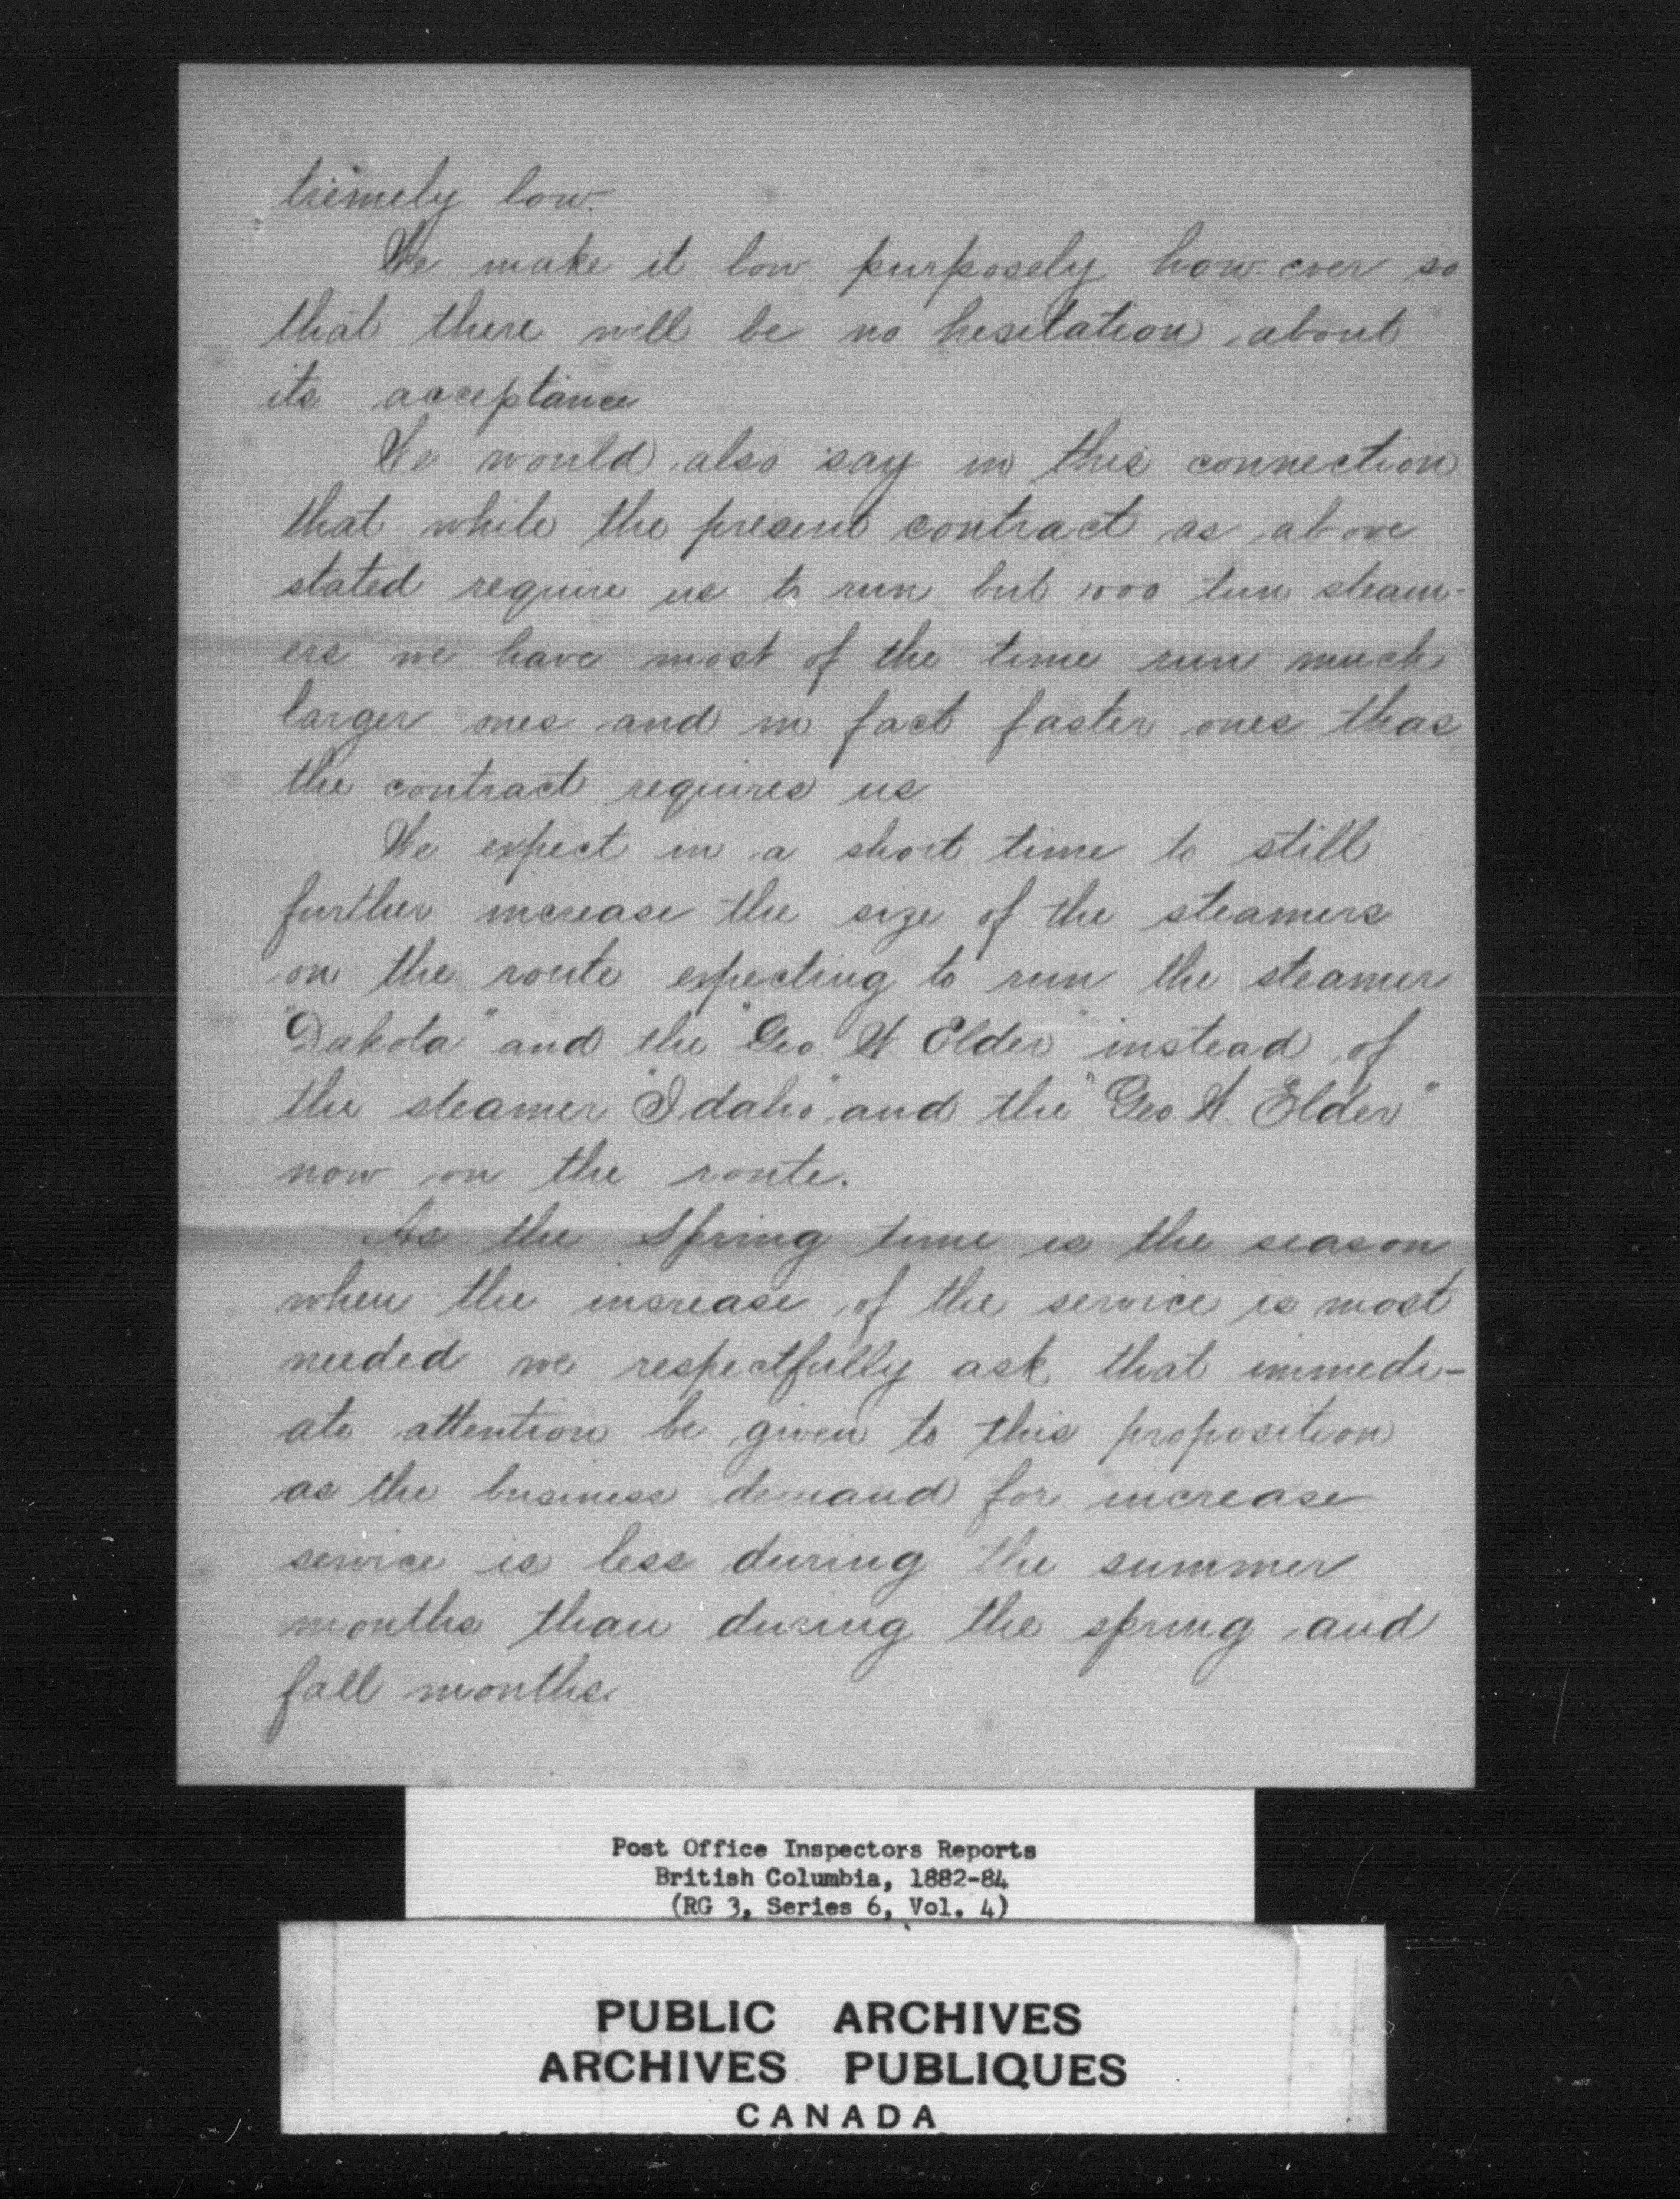 tremely low.
We make it low purposely how ever so
that there will be no hesitation about
its acceptance
We would also say in this connection
that while the present contract as above
stated require us to run but 1000 tun steam-
ers we have most of the time run much
larger ones and in fact faster ones thas
the contract requires us
We expect in a short time to still
further increase the size of the steamers
on the route expecting to run the steamer
"Dakota" and the "Geo W. Elder" instead of
the steamer "Idaho" and the "Geo W. Elder"
now on the route.
As the Spring time is the season
when the increase of the service is most
needed we respectfully ask that immedi-
ate attention be given to this proposition
as the business demand for increase
service is less during the summer
months than during the spring and
fall months.
Post Office Inspectors Reports
British Columbia, 1882-84
(RG 3, Series 6, Vol. 4)
PUBLIC ARCHIVES
ARCHIVES PUBLIQUES
CANADA